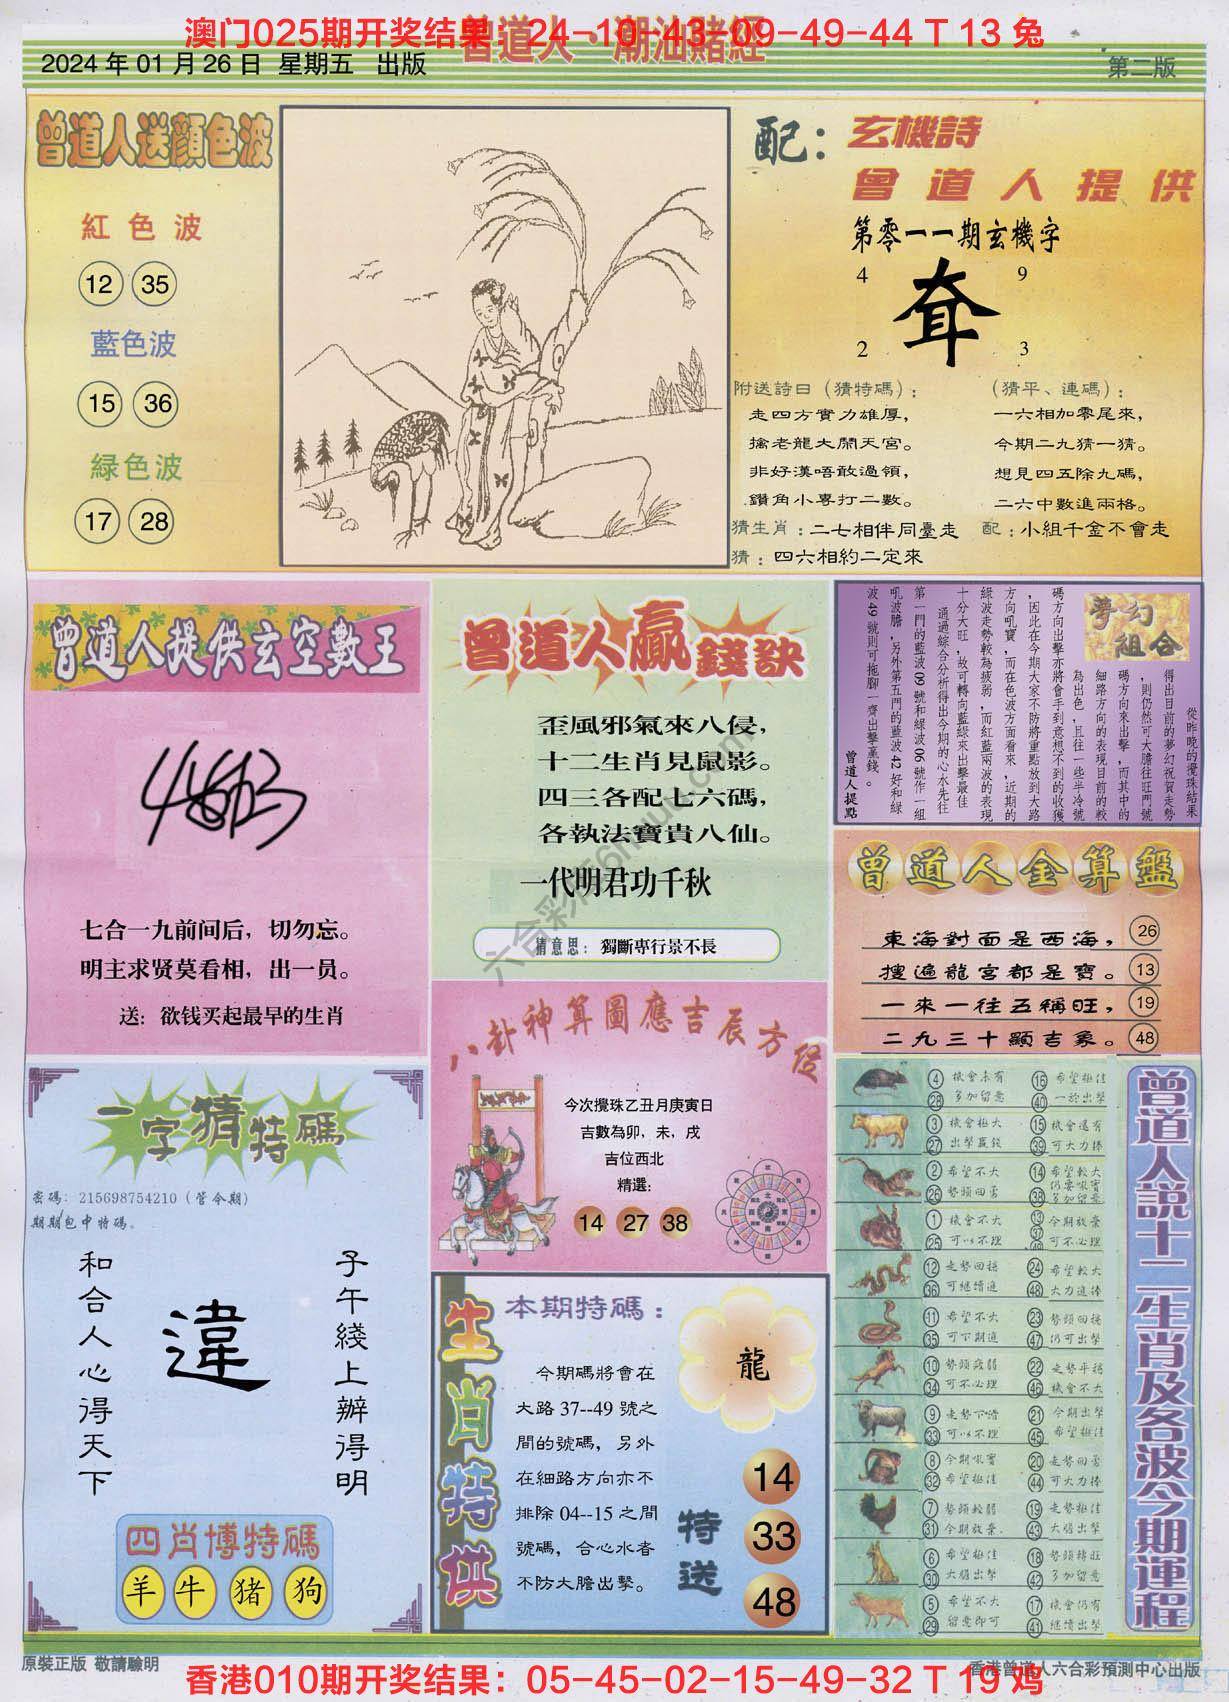 澳门025期开奖结果：24-10-43-09-49-44 T 13 兔
曾道人·潮汕賭經
2024 年 01 月 26 日  星期五  出版
第二版
曾道人送顏色波
紅色波
12 35
藍色波
15 36
緑色波
17 28
配：玄機詩
曾道人提供
第零一一期玄機字
4 9
2 3
附送詩曰（猜特碼）：
走四方實力雄厚，
擒老龍大鬧天宮。
非好漢唔敢過領，
鑽角小專打二數。
（猜平、連碼）：
一六相加零尾來，
今期二九猜一猜。
想見四五除九碼，
二六中數進兩格。
猜生肖：二七相伴同臺走
配：小組千金不會走
猜：四六相約二定來
曾道人提供玄空數王
七合一九前间后，切勿忘。
明主求贤莫看相，出一员。
送：欲钱买起最早的生肖
曾道人贏錢訣
歪風邪氣來八侵，
十二生肖見鼠影。
四三各配七六碼，
各執法寶貴八仙。
一代明君功千秋
猜意思：獨斷專行景不長
夢幻組合
從昨晚的攪珠結果
得出目前的夢幻祝賀走勢
，則仍然可大膽往旺門號
碼方向來出擊，而其中的
細路方向的表現目前的較
為出色，且往一些半冷號
碼方向出擊亦將會手到意想不到的收獲
，因此在今期大家不防將重點放到大路
方向吼寶，而在色波方面看來，近期的
綠波走勢較為疲弱，而紅藍兩波的表現
十分大旺，故可轉向藍綠來出擊最佳
通過綜合分析得出今期的心水先往
第一門的藍波 09 號和綠波 06 號作一組
吼波膽，另外第五門的藍波 42 好和綠
波 49 號則可拖腳一齊出擊贏錢。
曾道人提點
曾道人金算盤
東海對面是西海， 26
搜遍龍宮都是寶。 13
一來一往五稱旺， 19
二九三十顯吉象。 48
八卦神算圖應吉辰方位
今次攪珠乙丑月庚寅日
吉數為卯，未，戌
吉位西北
精選：
14 27 38
一字猜特碼
密碼：215698754210（管令期）
期期包中特碼。
和合人心得天下
違
子午綫上辦得明
四肖博特碼
羊 牛 猪 狗
生肖特供
本期特碼：
龍
今期碼將會在
大路 37--49 號之
間的號碼，另外
在細路方向亦不
排除 04--15 之間
號碼，合心水者
不防大膽出擊。
特送
14
33
48
曾道人説十二生肖及各波今期運程
4 28 機會未有 多加留意 16 40 希望極佳 一於出擊
3 27 機會極大 出擊贏錢 15 39 機會還有 可大力捧
2 26 希望不大 勢頭回落 14 38 希望較大 仍要吼實 多加留意
1 25 機會不大 可以不理 13 37 49 今期放棄 可不必理
12 36 走勢回穩 可繼續追 24 48 希望較大 大力追捧
11 35 希望不大 可下期追 23 47 勢頭回穩 仍可出擊
10 34 勢頭疲弱 可不必理 22 46 走勢平穩 機會不大
9 33 走勢下滑 可以不理 21 45 今期出擊 希望極佳
8 32 今期吼實 希望極佳 20 44 走勢回落 可大力捧
7 31 勢頭較弱 今期放棄. 19 43 走勢極佳 大膽出擊
6 30 希望極佳 大膽出擊 18 42 勢頭轉旺 多加留意
5 29 希望不大 留意即可 17 41 機會仍有 繼續出擊
原裝正版 敬請驗明
香港曾道人六合彩預測中心出版
香港010期开奖结果：05-45-02-15-49-32 T 19 鸡